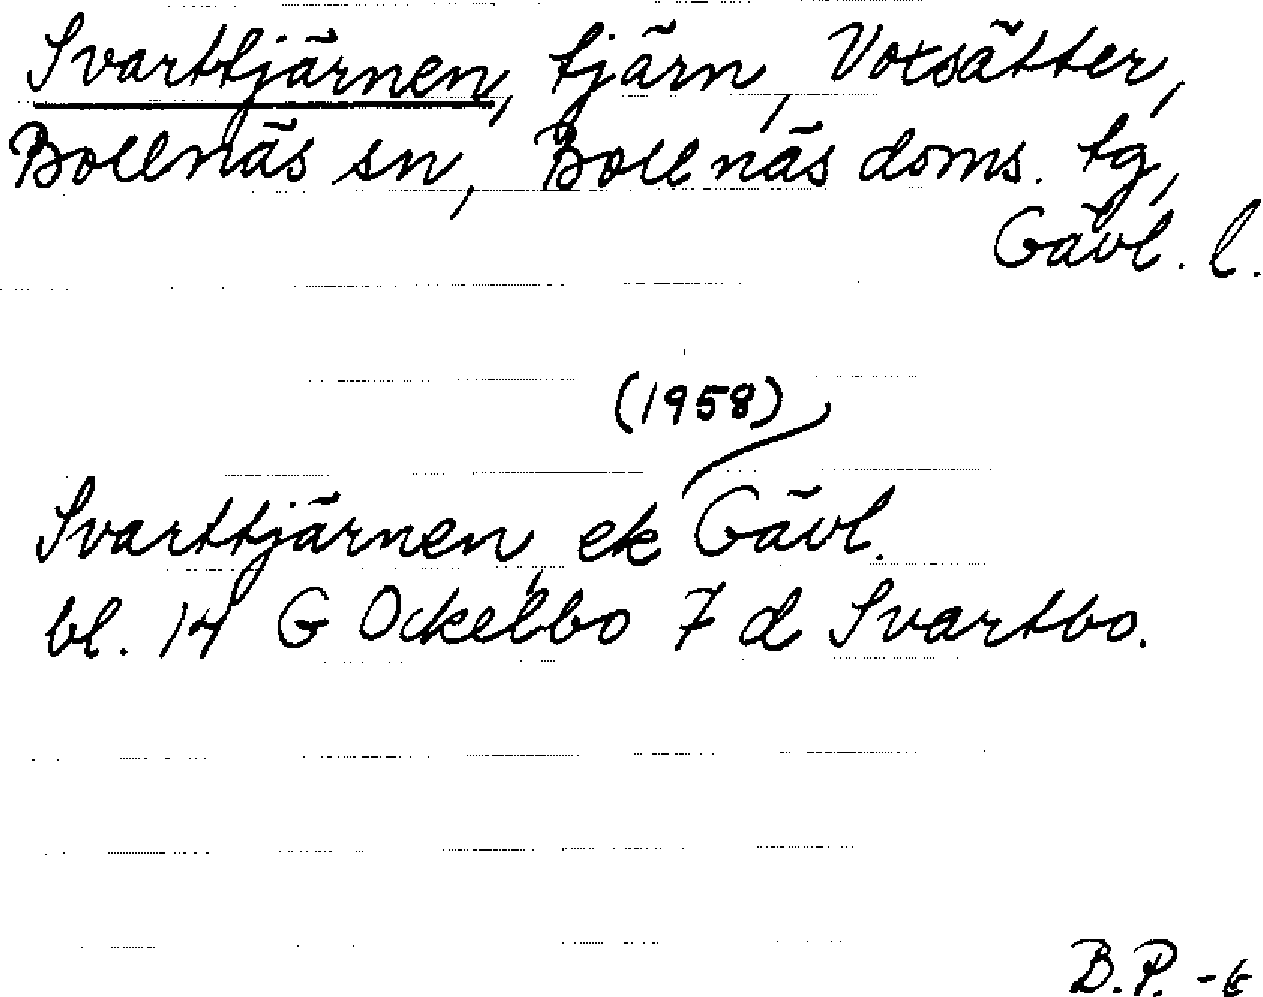 Svarttjärnen, tjärn, Voxsätter,
Bollnäs sn, Bollnäs doms. tg,
Gävl. l.
(1958)
Svarttjärnen, ek Gävl.
bl. 14 G Ockelbo 7 d Svartbo.
B.P.